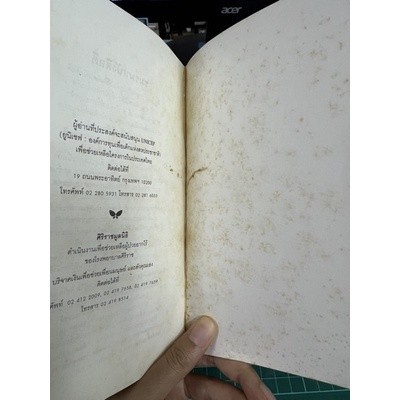 acer
ผู้อ่านที่ประสงค์จะสนับสนุน UNICEF
(ยูนิเซฟ : องค์การทุนเพื่อเด็กแห่งสหประชาชาติ)
เพื่อช่วยเหลือโครงการในประเทศไทย
ติดต่อได้ที่
19 ถนนพระอาทิตย์ กรุงเทพฯ 10200
โทรศัพท์ 02 280 5931 โทรสาร 02 281 6032
ศิริราชมูลนิธิ
ดำเนินงานเพื่อช่วยเหลือผู้ป่วยยากไร้
ของโรงพยาบาลศิริราช
บริจาคเงินเพื่อช่วยเพื่อนมนุษย์ และตัวคุณเอง
ติดต่อได้ที่
ศัพท์ 02 412 2009, 02 419 7658, 02 419 7659
โทรสาร 02 419 8514